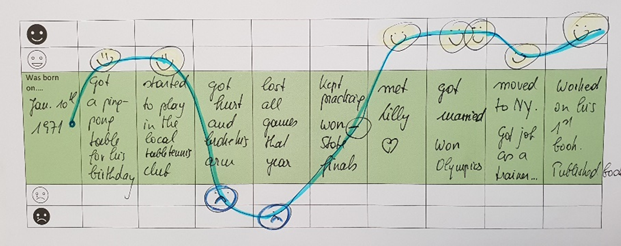 Was born
on...
Jan. 10th
1971
got
a ping-
pong
table
for his
birthday
started
to play
in the
local
table tennis
club
got
hurt
and
broke his
arm
lost
all
games
that
year
kept
practicing
won
State
finals
met
Lilly
got
married
won
Olympics
moved
to NY.
Got job
as a
trainer...
Worked
on his
1st
book.
Published book